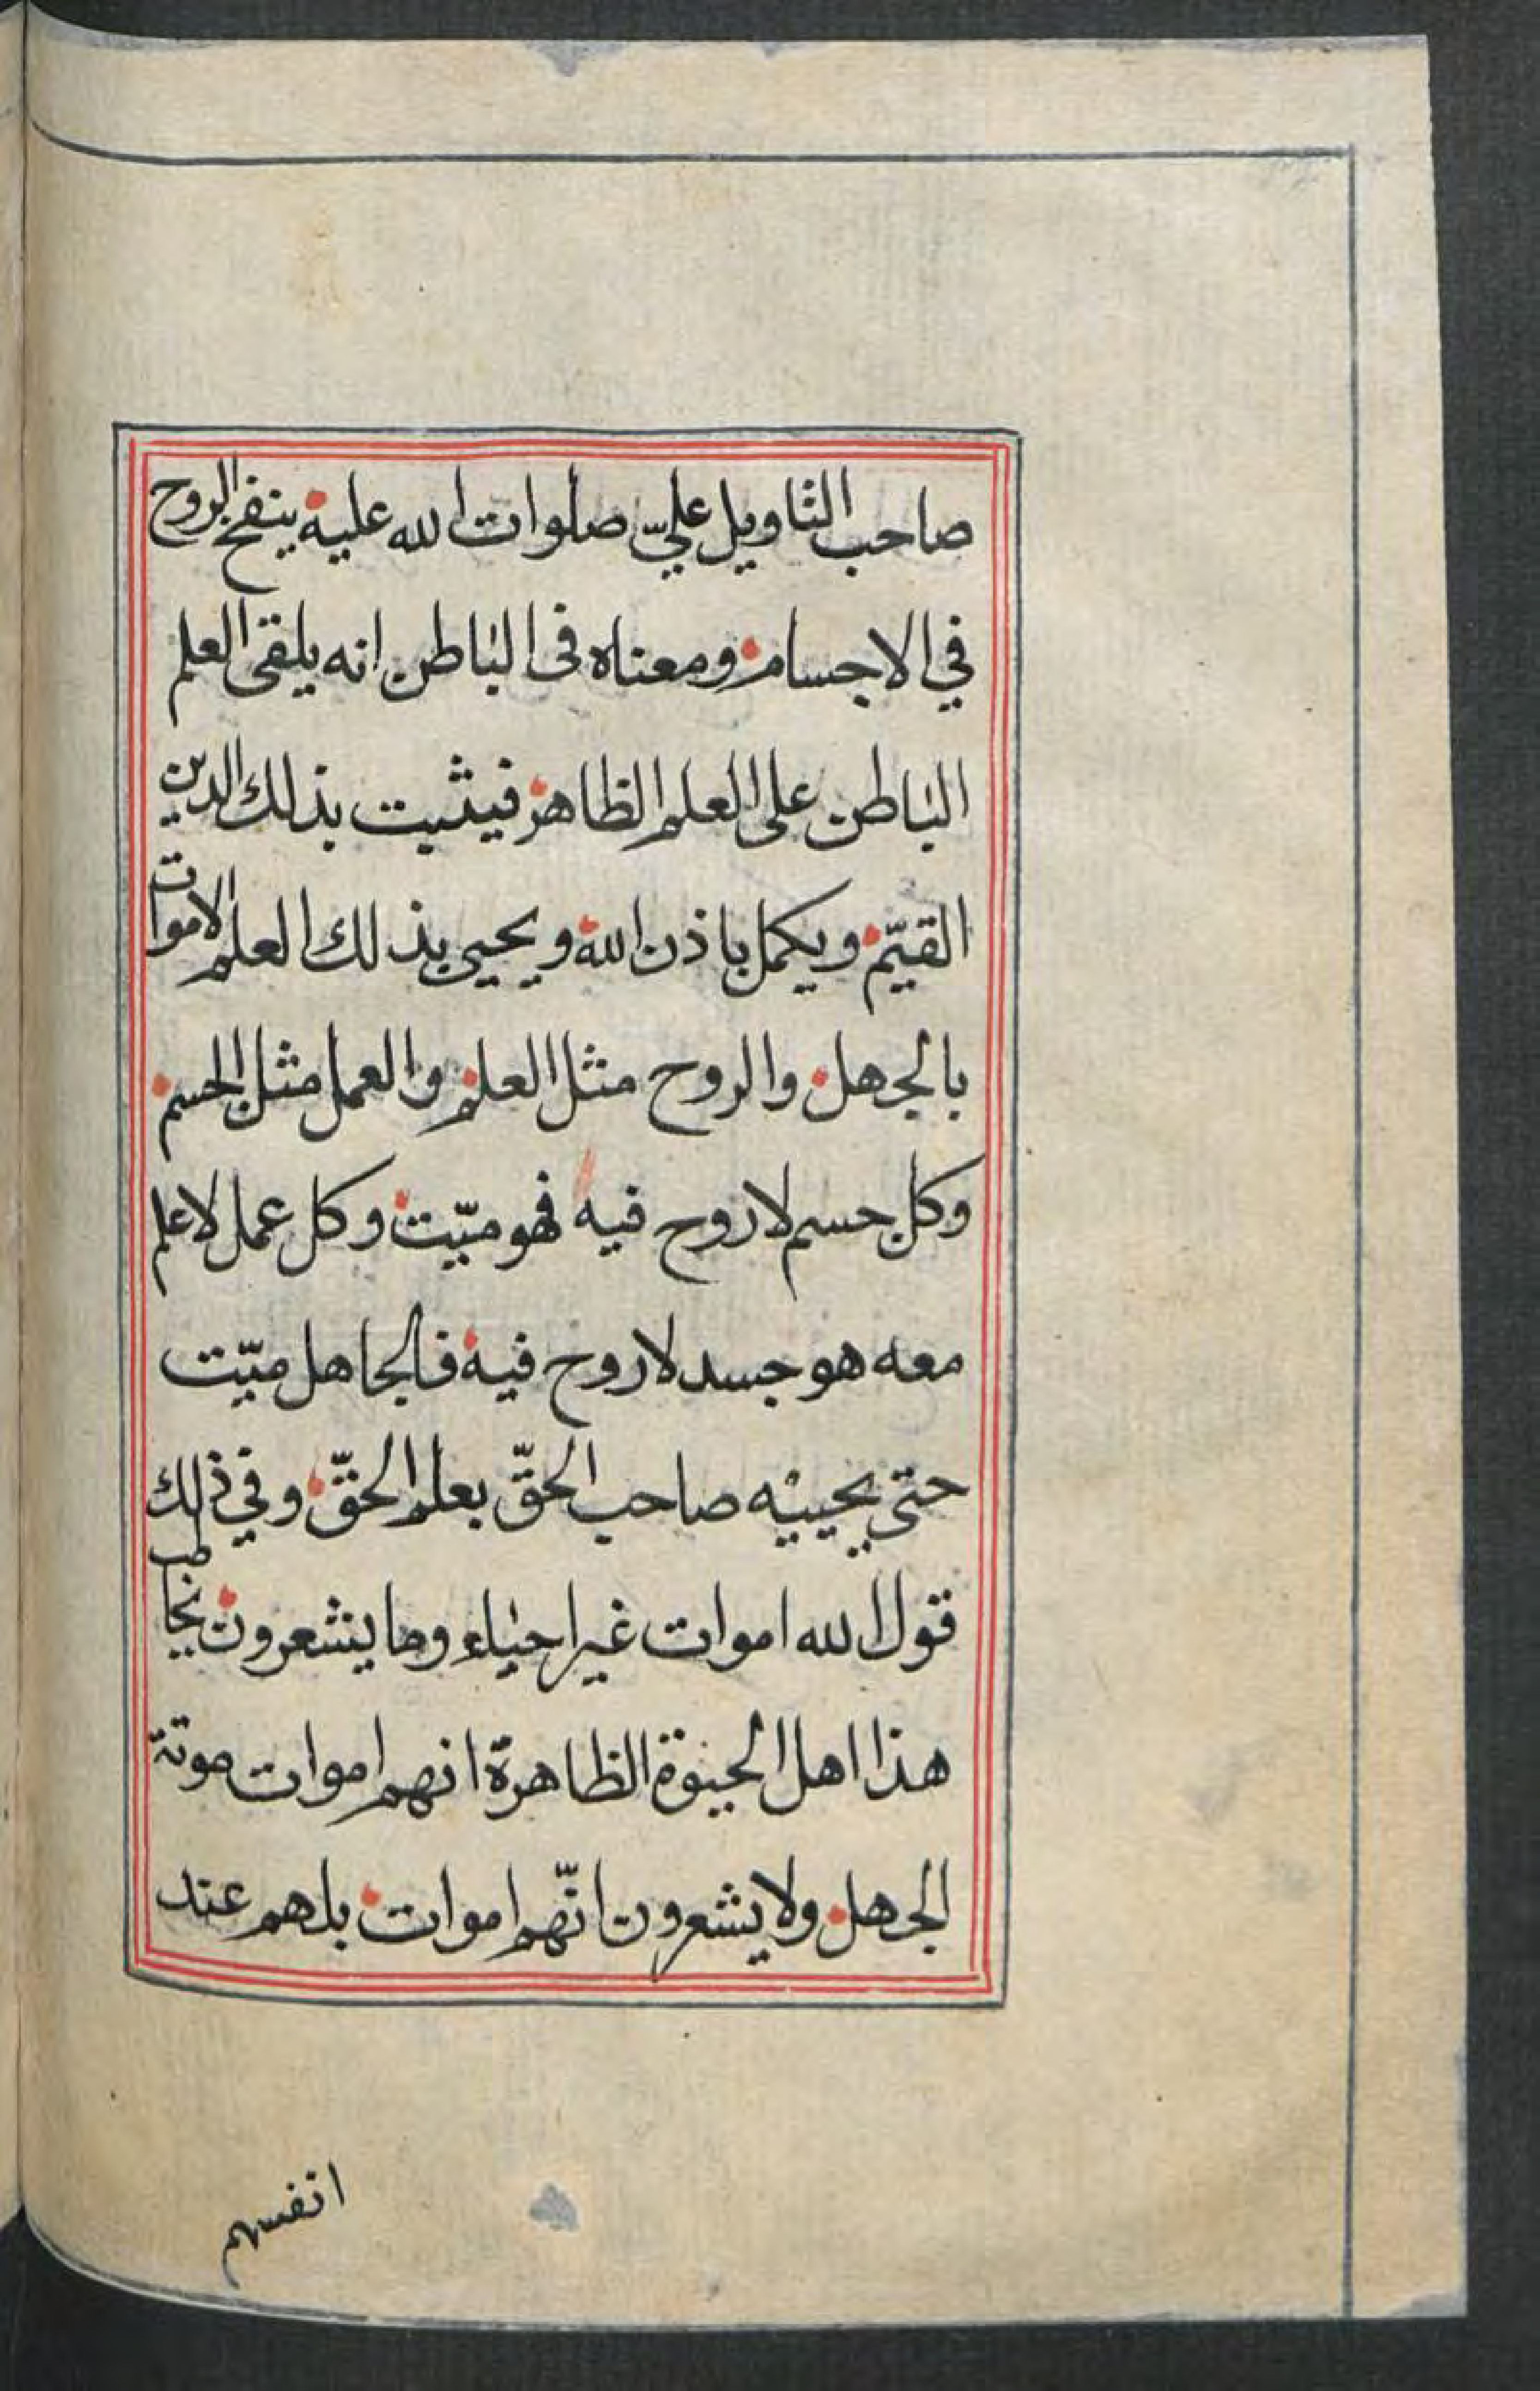 صاحب التاويل عليّ صلوات الله عليه ينفخ الروح
في الاجسام ومعناه في الباطن انه يلقى العلم
الباطن على العلم الظاهر فيثبت بذلك الدين
القيّم ويكمل باذن الله ويحيى بذلك العلم الاموات
بالجهل والروح مثل العلم والعمل مثل الجسم
وكل جسم لا روح فيه فهو ميّت وكل عمل لا علم
معه هو جسد لا روح فيه فالجاهل ميّت
حتى يحييه صاحب الحقّ بعلم الحقّ وفي ذلك
قول الله اموات غير احياء وما يشعرون يخاطب
هذا اهل الحيوة الظاهرة انهم اموات موتة
الجهل ولا يشعرون انّهم اموات بل هم عند
انفسهم